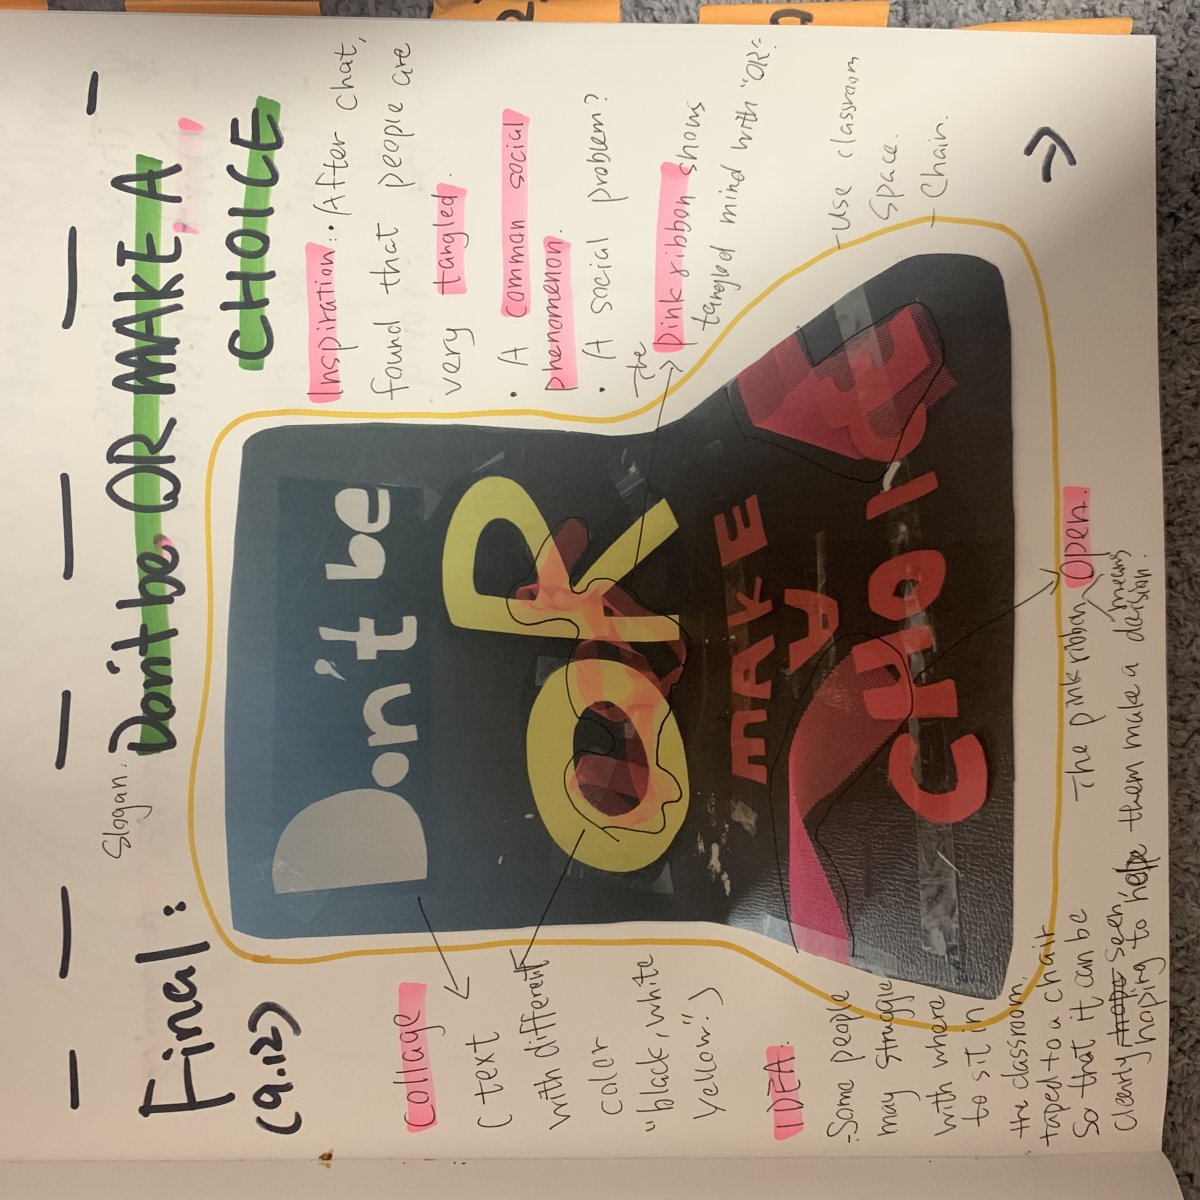 Final:
(9.12)
Slogan:
Don't be OR MAKE A
CHOICE
Inspiration: • After chat,
found that people are
very tangled.
• A comman social
phenomenon.
• A social problem?
The
pink ribbon shows
tangled mind with "OR".
- Use classroom
space.
- Chain.
Collage
( text
with different
color
"black, white
yellow".)
Don't be
OR
MAKE
A
CHOI
IDEA:
- Some people
may struggle
with where
to sit in
the classroom,
taped to a chair
so that it can be
clearly hope seen,
hoping to help them make a decision.
The pink ribbon open.
means